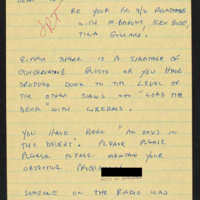 RE YOUR 9/3 ROUNDTABLE
WITH M. BARONE, KEN BODE,
TINA GULLAND.
EITHER THERE IS A SHORTAGE OF
CONSERVATIVE GUESTS OR YOU HAVE
DROPPED DOWN TO THE LEVEL OF
THE OTHER SHOWS WHO "LOAD THE
DECK" WITH LIBERALS.
YOU HAVE BEEN "AN OASIS IN
THE DESERT". PLEASE PLEASE
PLEASE PLEASE MAINTAIN YOUR
OBJECTIVE
SOMEONE ON THE RADIO WAS